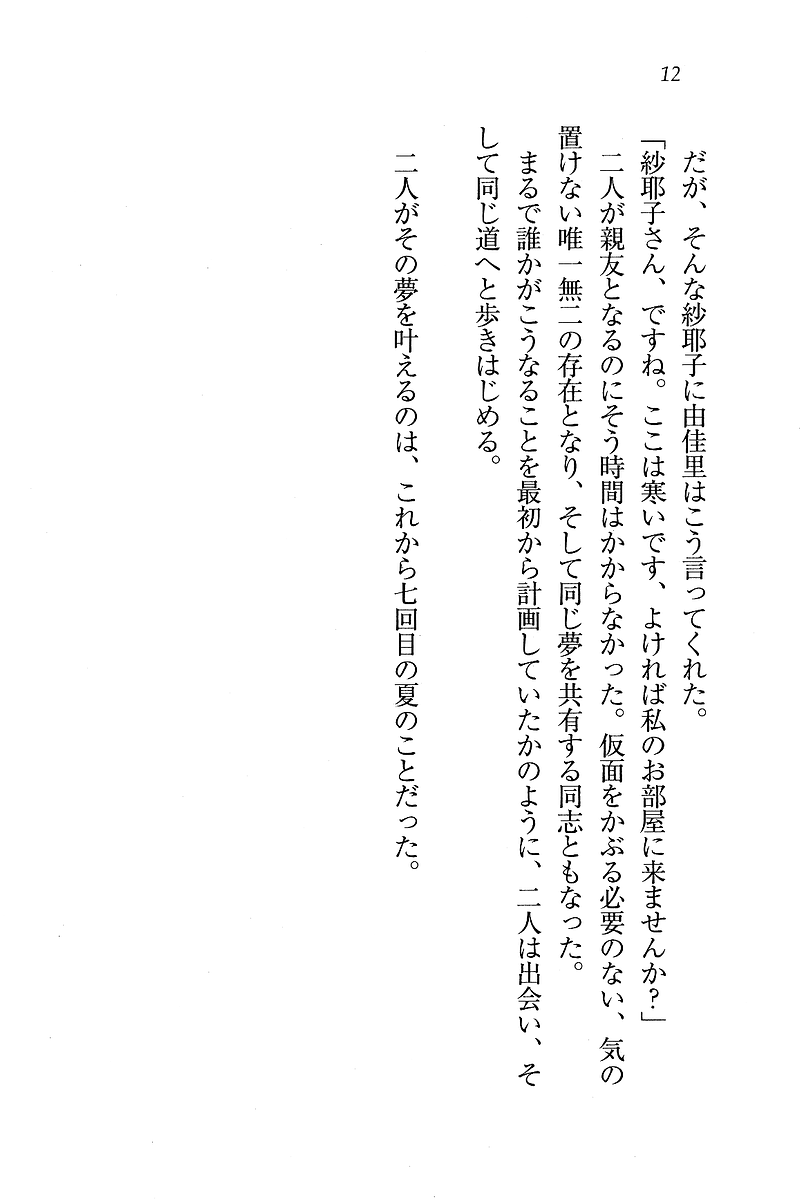 12
だが、そんな紗耶子に由佳里はこう言ってくれた。
「紗耶子さん、ですね。ここは寒いです、よければ私のお部屋に来ませんか？」
二人が親友となるのにそう時間はかからなかった。仮面をかぶる必要のない、気の
置けない唯一無二の存在となり、そして同じ夢を共有する同志ともなった。
まるで誰かがこうなることを最初から計画していたかのように、二人は出会い、そ
して同じ道へと歩きはじめる。
二人がその夢を叶えるのは、これから七回目の夏のことだった。